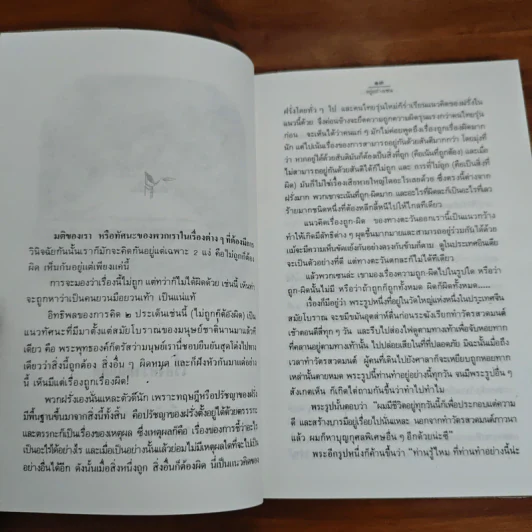 มติของเรา หรือทัศนะของพวกเราในเรื่องต่าง ๆ ที่ต้องมีการ
วินิจฉัยกันนั้นเราก็มักจะคิดกันอยู่แต่เฉพาะ ๒ แง่ คือไม่ถูกก็ต้อง
ผิด เพิ่มกันอยู่แต่เพียงแค่นี้
การจะมองว่าเรื่องนี้ไม่ถูก แต่ทว่าก็ไม่ได้ผิดด้วย เช่นนี้ เห็นท่า
จะถูกหาว่าเป็นคนยวนเมือยวนเท้า เป็นแน่แท้
อิทธิพลของการคิด ๒ ประเด็นเช่นนี้ (ไม่ถูกก็ต้องผิด) เป็น
แนวทัศนะที่มีมาตั้งแต่สมัยโบราณของมนุษย์ชาตินานมาแล้วที
เดียว คือ พระพุทธองค์ก็ตรัสว่ามนุษย์เรานี้ชอบยืนยันสุดโต่งไปทาง
เดียวว่าสิ่งนี้ถูกต้อง สิ่งอื่น ๆ ผิดหมด และก็ฝังหัวกันมาแต่อย่าง
นี้ เห็นมีแต่เรื่องถูกเรื่องผิด!
พวกฝรั่งเองนั้นแหละตัวดีนัก เพราะทฤษฎีหรือปรัชญาของฝรั่ง
มีพื้นฐานขึ้นมาจากสิ่งนี้ทั้งสิ้น คือปรัชญาของฝรั่งตั้งอยู่ได้ด้วยตรรกะ
และตรรกะก็เป็นเรื่องของเหตุผล ซึ่งเหตุผลก็คือ เรื่องของการชี้ว่าอะไร
เป็นอะไรได้อย่างไร และเมื่อเป็นอย่างนั้นแล้วย่อมไม่มีเหตุผลใดที่จะไปเป็น
อย่างอื่นได้อีก ดังนั้นเมื่อสิ่งหนึ่งถูก สิ่งอื่นก็ต้องผิด นี่เป็นแนวคิดของ
๑๓
อยู่อย่างเซน
ฝรั่งโดยทั่ว ๆ ไป และคนไทยรุ่นใหม่ก็ร่ำเรียนแนวคิดของฝรั่งใน
แนวนี้ด้วย จึงค่อนข้างจะยึดความถูกความผิดรุนแรงกว่าคนไทยรุ่น
ก่อน จะเห็นได้ว่าคนแก่ ๆ มักไม่ค่อยพูดถึงเรื่องถูกเรื่องผิดมาก
นัก แต่ไปเน้นเรื่องของการสามารถอยู่กันด้วยสันติมากกว่า โดยมุ่งที่
ว่า หากอยู่ได้ด้วยสันติมันก็ต้องเป็นสิ่งที่ถูก (คือเน้นที่ถูกต้อง) และเมื่อ
ไม่สามารถอยู่กันด้วยสันติได้ก็ไม่ถูก และ การที่ไม่ถูก (คือเป็นสิ่งที่
ผิด) มันก็ไม่ใช่เรื่องเสียหายใหญ่โตอะไรเลยด้วย ซึ่งตรงนี้ต่างจาก
ฝรั่งมาก พวกเขาจะเน้นที่ถูก-ผิดมาก และอะไรที่ผิดละก็เป็นอะไรที่เลว
ร้ายมากชนิดหนึ่งที่ต้องหลีกลี้หนีไปให้ไกลทีเดียว
แนวคิดเรื่องถูก-ผิด ของทางตะวันออกเรานี้เป็นแนวกว้าง
ทำให้เกิดมีลัทธิต่าง ๆ ผุดขึ้นมากมายและสามารถอยู่ร่วมกันได้ด้วย
แม้จะมีความขัดแย้งกันอย่างตรงข้ามก็ตาม ดูในประเทศอินเดีย
จะเป็นตัวอย่างที่ดี แต่ทางตะวันตกละก็ไม่ได้ทีเดียว
แล้วพวกเซนล่ะ เขามองเรื่องความถูก-ผิดไปในรูปใด หรือว่า
ถูกผิดนั้นไม่มี หรือว่าถ้าถูกก็ถูกทั้งหมด ผิดก็ผิดทั้งหมด.....
เรื่องก็มีอยู่ว่า พระรูปหนึ่งที่อยู่ในวัดใหญ่แห่งหนึ่งในประเทศจีน
สมัยโบราณ จะขมีขมันลุกล้าห์ตื่นก่อนระฆังเรียกทำวัตรสวดมนต์
เช้าตอนตีสี่ทุก ๆ วัน และรีบไปส่องไฟดูตามทางเท้าเพื่อจับหอยทาก
ที่คลานอยู่ตามทางเท้านั้น ไปปล่อยเสียในที่ที่ปลอดภัย มิฉะนั้นเมื่อถึง
เวลาทำวัตรสวดมนต์ ผู้คนที่เดินไปยังศาลาก็จะเหยียบถูกหอยทาก
เหล่านั้นตายหมด พระรูปนี้ท่านทำอย่างนี้อยู่ทุกวัน จนมีพระรูปอื่น ๆ
สังเกตเห็น ก็เกิดไต่ถามกันขึ้นว่าทำไปทำไม
พระรูปนั้นตอบว่า “ผมมีชีวิตอยู่ทุกวันนี้ก็เพื่อประกอบแต่ความ
ดี และสร้างบารมีอยู่เรื่อยไปนั่นแหละ นอกจากทำวัตรสวดมนต์ภาวนา
แล้ว ผมก็หาบุญกุศลพิเศษอื่น ๆ อีกด้วยน่ะซี”
พระอีกรูปหนึ่งก็ค้านขึ้นว่า “ท่านรู้ไหม ที่ท่านทำอย่างนี้น่ะ